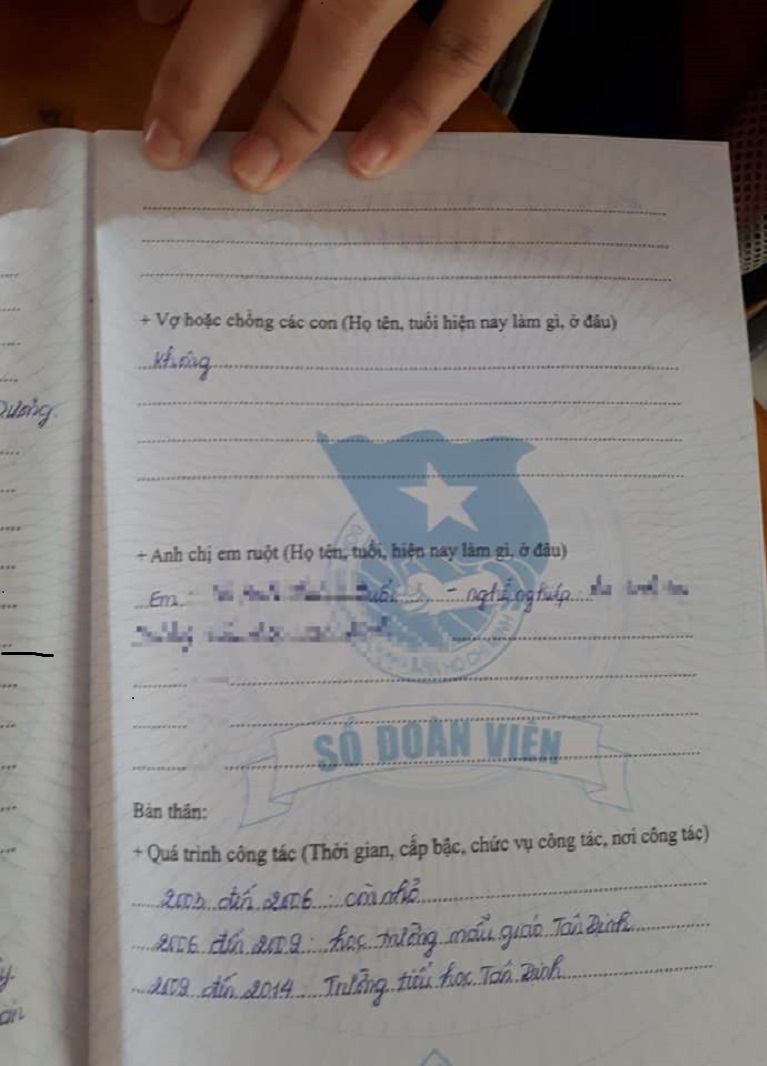 + Vợ hoặc chồng các con (Họ tên, tuổi hiện nay làm gì, ở đâu)
Không
Dương
+ Anh chị em ruột (Họ tên, tuổi, hiện nay làm gì, ở đâu)
Em: - nghề nghiệp:
HỒ CHÍ MINH
SỔ ĐOÀN VIÊN
Bản thân:
+ Quá trình công tác (Thời gian, cấp bậc, chức vụ công tác, nơi công tác)
2003 đến 2006: còn nhỏ
2006 đến 2009: học trường mẫu giáo Tân Định
2009 đến 2014: Trường tiểu học Tân Định